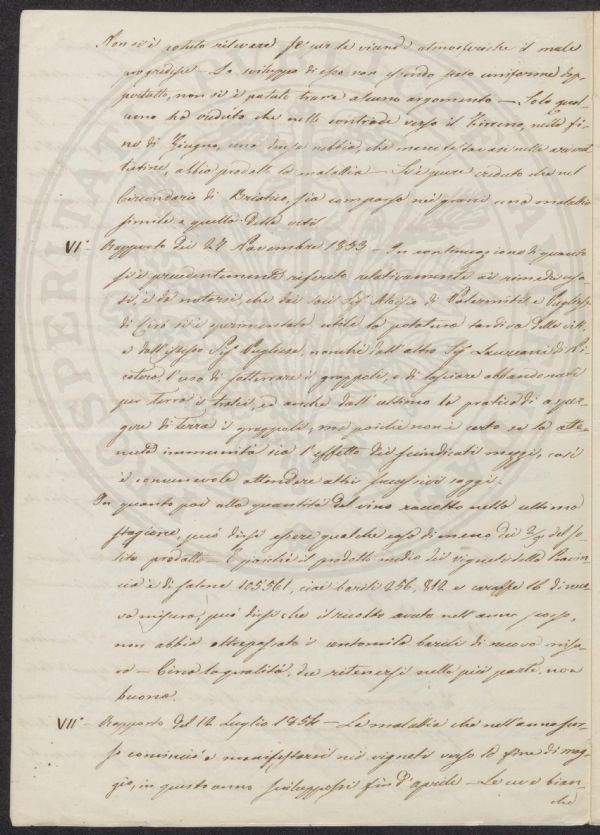 Non si è potuto rilevare se con le vicende atmosferiche il male
progredisse — Lo sviluppo di esso non essendo stato uniforme da
pertutto, non si è potuto trarre alcuno argomento — Solo qual
cuno ha veduto che nelle contrade verso il Tirreno, nella fi
ne di Giugno, una densa nebbia, che
abbia prodotto la malattia — Si è pure creduto che nel
Circondario di Briatico, sia comparsa nei grani una malattia
simile a quella delle viti
VI° Rapporto del 27 Novembre 1853 — In continuazione di quanto
si è precedentemente riferito relativamente ai rimedi usa
ti, è da notarsi, che dai soci Sig. Alessio di Palermiti e Pugliese
di Cirò si è sperimentata utile la potatura tardiva delle viti
e dall'istesso Sig. Pugliese, nonché dall'altro Sig. Laureani di Ni
cotera, l'uso di sotterrare i grappoli, e di lasciare abbandonati
per terra i tralci, ed anche dall'ultimo la pratica di asper
gere di terra i grappoli, ma poiché non è certo se la otte
nuta immunità sia l'effetto dei suindicati mezzi, così
è convenevole attendere altri successivi saggi.
In quanto poi alla quantità del vino raccolto nella ultima
stagione, può dirsi essere qualche cosa di meno dei 2/3 del so
lito prodotto — E poiché il prodotto medio dei vigneti della Provin
cia è di salme 105561, cioè barili 256,812 e caraffe 16 di nuo
va misura, può dirsi che il ricolto avuto nell'anno scorso,
non abbia oltrepassato i centomila barili di nuova misu
ra — Circa la qualità, dee ritenersi nella più parte non
buona.
VII° Rapporto del 12 Luglio 1854 — La malattia che nell'anno scor
so cominciò a manifestarsi nei vigneti verso la fine di mag
gio, in questo anno sviluppossi fin d'aprile — Le uve bian
che